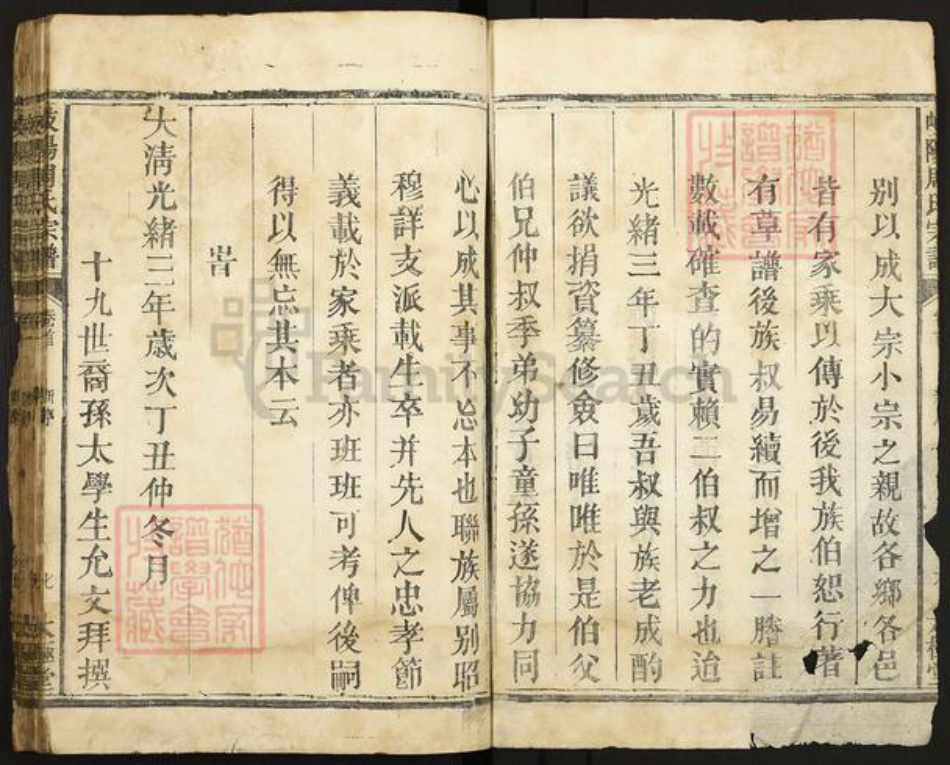 別以成大宗小宗之親故各鄉各邑
皆有家乘以傳於後我族伯恕行著
有草譜後族叔易續而增之一謄註
數載確查的實賴二伯叔之力也迨
光緒三年丁丑歲吾叔與族老成酌
議欲捐資纂修僉曰唯唯於是伯父
伯兄仲叔季弟幼子童孫遂協力同
心以成其事不忘本也聯族屬别昭
穆詳支派載生卒并先人之忠孝節
義載於家乘者亦班班可考俾後嗣
得以無忘其本云
旹
大清光緒三年歲次丁丑仲冬月
十九世裔孫太學生允文拜撰
岐陽周氏宗譜
岐陽周氏宗譜 卷首
猶他家
譜學會
收藏
猶他家
譜學會
收藏
FamilySearch